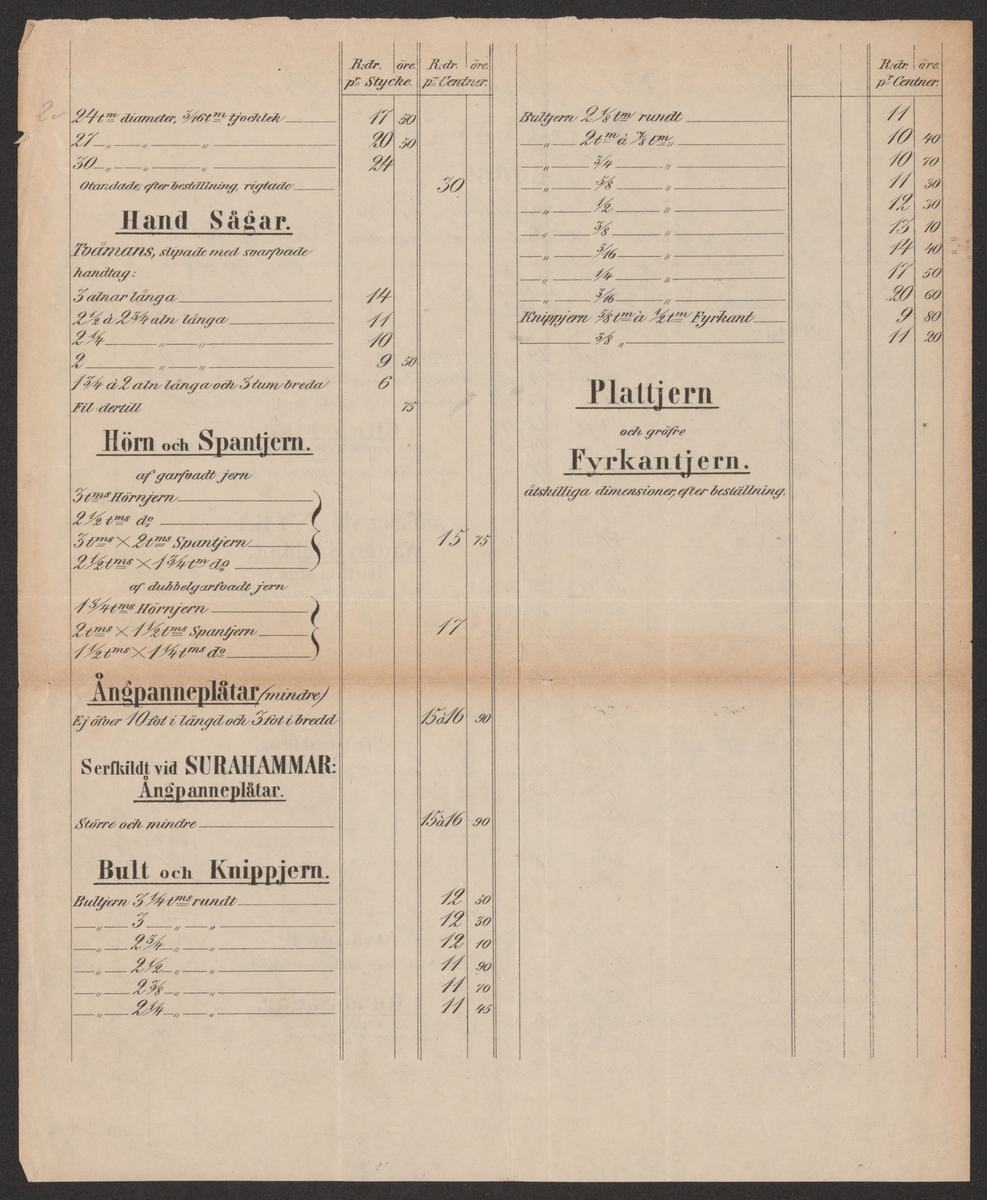 R:dr. öre. R:dr. öre.
pr Stycke. pr Centner.
24tm diameter, 5/16tm tjocklek 17 50
27 „ „ „ 20 50
30 „ „ „ 24
Otandade, efter beställning, rigtade 30
Hand Sågar.
Tvåmans, slipade med svarfvade
handtag:
3 alnar långa 14
2 1/2 à 2 3/4 aln långa 11
2 1/4 „ „ 10
2 „ „ 9 50
1 3/4 à 2 aln långa och 3 tum breda 6
Fil dertill 75
Hörn och Spantjern.
af garfvadt jern
3tms Hörnjern
2 1/2 tms do
3tms × 2tms Spantjern 15 75
2 1/2tms × 1 3/4 tm do
af dubbelgarfvadt jern
1 3/4tms Hörnjern
2tms × 1 1/2tms Spantjern 17
1 1/2tms × 1 1/4tms do
Ångpanneplåtar (mindre)
Ej öfver 10 fot i längd och 3 fot i bredd 15à16 90
Serskildt vid SURAHAMMAR:
Ångpanneplåtar.
Större och mindre 15à16 90
Bult och Knippjern.
Bultjern 3 1/4tms rundt 12 50
„ 3 „ „ 12 30
„ 2 3/4 „ „ 12 10
„ 2 1/2 „ „ 11 90
„ 2 3/8 „ „ 11 70
„ 2 1/4 „ „ 11 45
R:dr. öre.
pr Centner.
Bultjern 2 1/8tm rundt 11
„ 2tm à 7/8tm „ 10 40
„ 3/4 „ 10 70
„ 5/8 „ 11 30
„ 1/2 „ 12 30
„ 3/8 „ 13 10
„ 5/16 „ 14 40
„ 1/4 „ 17 50
„ 3/16 „ 20 60
Knippjern 5/8tm à 1/2tm Fyrkant 9 80
3/8 „ 11 20
Plattjern
och gröfre
Fyrkantjern.
åtskilliga dimensioner, efter beställning.